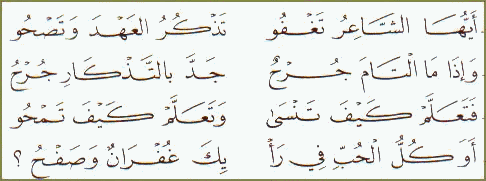 أَيُّهَا الشَّاعِرُ تَغْفُو تَذْكُرُ العَهْدَ وَتَصْحُو
وَإِذَا مَا الْتَامَ جُرْحٌ جَدَّ بِالتَّذْكَارِ جُرْحُ
فَتَعَلَّمْ كَيْفَ تَنْسَى وَتَعَلَّمْ كَيْفَ تَمْحُو
أَوَ كُلُّ الْحُبِّ فِي رَأْ يِكَ غُفْرَانٌ وَصَفْحُ ؟